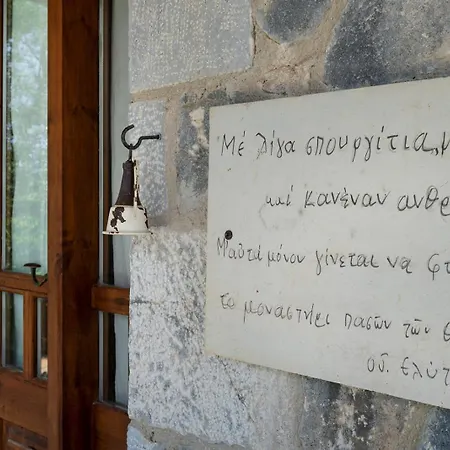 Μέ λίγα σπουργίτια,,
καί κανέναν ανθρ
Μ αυτά μόνον γίνεται να φτ
το μοναστήρι πασῶν τῶν
οδ. ελύτ